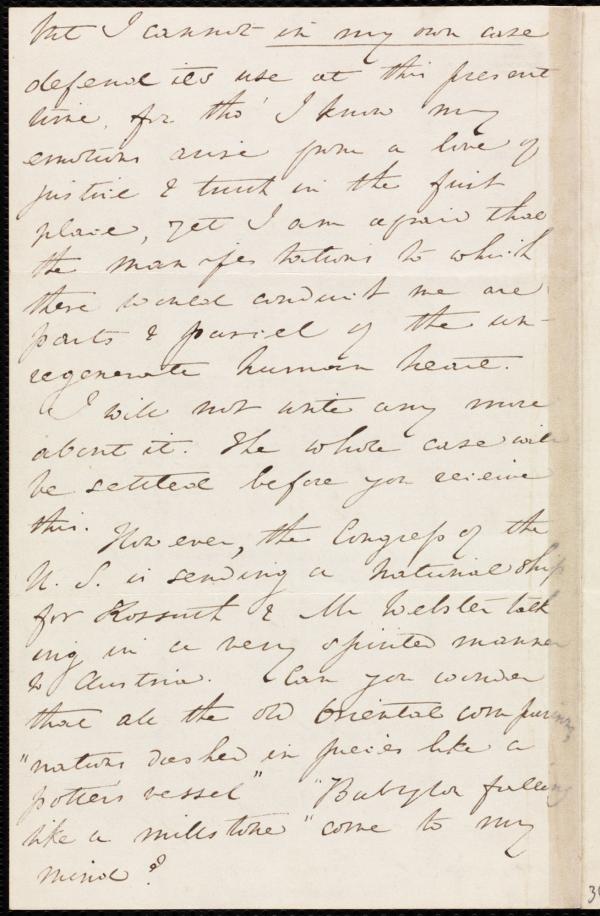 but I cannot in my own case
defend its use at this present
time, for tho' I know my
emotions arise from a love of
justice & truth in the first
place, yet I am afraid that
the manifestations to which
these would conduct me are
parts & parcel of the un-
regenerate human heart.
I will not write any more
about it. The whole case will
be settled before you receive
this.
However, the Congress of the
U. S. is sending a national ship
for Kossuth & Mr Webster talk
ing in a very spirited manner
to Austria. Can you wonder
that all the old Oriental comparisons,
"nations dashed in pieces like a
potters vessel" "Babylon falling
like a millstone" come to my
mind?